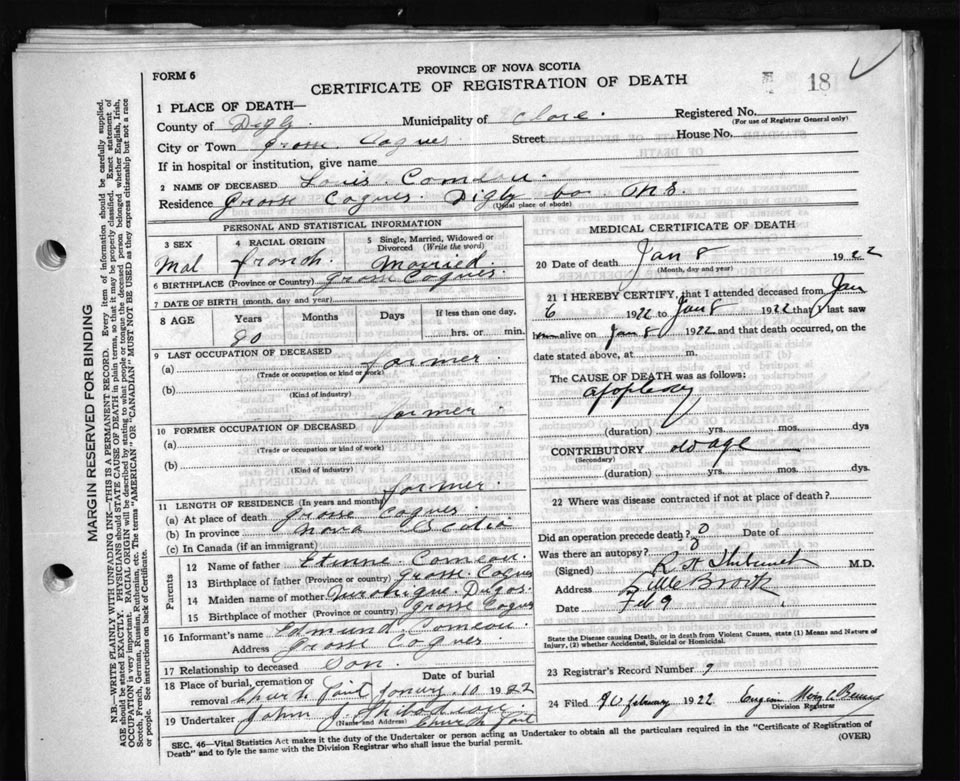 FORM 6
PROVINCE OF NOVA SCOTIA
CERTIFICATE OF REGISTRATION OF DEATH
18
MARGIN RESERVED FOR BINDING
N.B.—WRITE PLAINLY WITH UNFADING INK—THIS IS A PERMANENT RECORD. Every item of information should be carefully supplied.
AGE should be stated EXACTLY. PHYSICIANS should STATE CAUSE OF DEATH in plain terms, so that it may be properly classified. Exact statement of
OCCUPATION is very important. RACIAL ORIGIN will be described by stating to what people or tongue the deceased person belonged whether English, Irish,
Scotch, French, German, Russian, Ruthenian, etc. The terms "AMERICAN" OR "CANADIAN" MUST NOT BE USED as they express citizenship but not a race
or people. See instructions on back of Certificate.
1 PLACE OF DEATH—
County of Digby. Municipality of Clare. Registered No.
(For use of Registrar General only)
City or Town Gross Coques Street House No.
If in hospital or institution, give name
2 NAME OF DECEASED Louis Comeau.
Residence Grosse Coques Digby Co N.S.
(Usual place of abode)
PERSONAL AND STATISTICAL INFORMATION
3 SEX
Mal
4 RACIAL ORIGIN
french.
5 Single, Married, Widowed or
Divorced (Write the word)
Married.
6 BIRTHPLACE (Province or Country) Gross Coques.
7 DATE OF BIRTH (month, day and year)
8 AGE Years Months Days If less than one day,
90 hrs. or min.
9 LAST OCCUPATION OF DECEASED
(a) farmer.
(Trade or occupation or kind of work)
(b)
(Kind of industry)
farmer.
10 FORMER OCCUPATION OF DECEASED
(a)
(Trade or occupation or kind of work)
(b)
(Kind of industry)
farmer.
11 LENGTH OF RESIDENCE (In years and months)
(a) At place of death Grosse Coques
(b) In province Nova Scotia
(c) In Canada (if an immigrant)
Parents
12 Name of father Etinne Comeau.
13 Birthplace of father (Province or country) Grosse Coques
14 Maiden name of mother Dugas.
15 Birthplace of mother (Province or country) Grosse Coques
16 Informant's name Edmund Comeau.
Address Grosse Coques
17 Relationship to deceased Son.
18 Place of burial, cremation or Date of burial
removal Church 10 1922
19 Undertaker John J. Thibodeau
(Name and Address) Church
MEDICAL CERTIFICATE OF DEATH
20 Date of death Jan 8 1922
(Month, day and year)
21 I HEREBY CERTIFY, that I attended deceased from Jan
6 1922 to Jan 8 1922 that I last saw
alive on Jan 8 1922 and that death occurred, on the
date stated above, at m.
The CAUSE OF DEATH was as follows:
apoplexy
(duration) yrs. mos. dys
CONTRIBUTORY old age
(Secondary)
(duration) yrs. mos. dys.
22 Where was disease contracted if not at place of death?
Did an operation precede death? 0 Date of
Was there an autopsy? 0
(Signed) M.D.
Address Little Brook
Date Feb 9
State the Disease causing Death, or in death from Violent Causes, state (1) Means and Nature of
Injury, (2) whether Accidental, Suicidal or Homicidal.
23 Registrar's Record Number 9
24 Filed february 1922
Division Registrar
SEC. 46—Vital Statistics Act makes it the duty of the Undertaker or person acting as Undertaker to obtain all the particulars required in the "Certificate of Registration of
Death" and to fyle the same with the Division Registrar who shall issue the burial permit. (OVER)